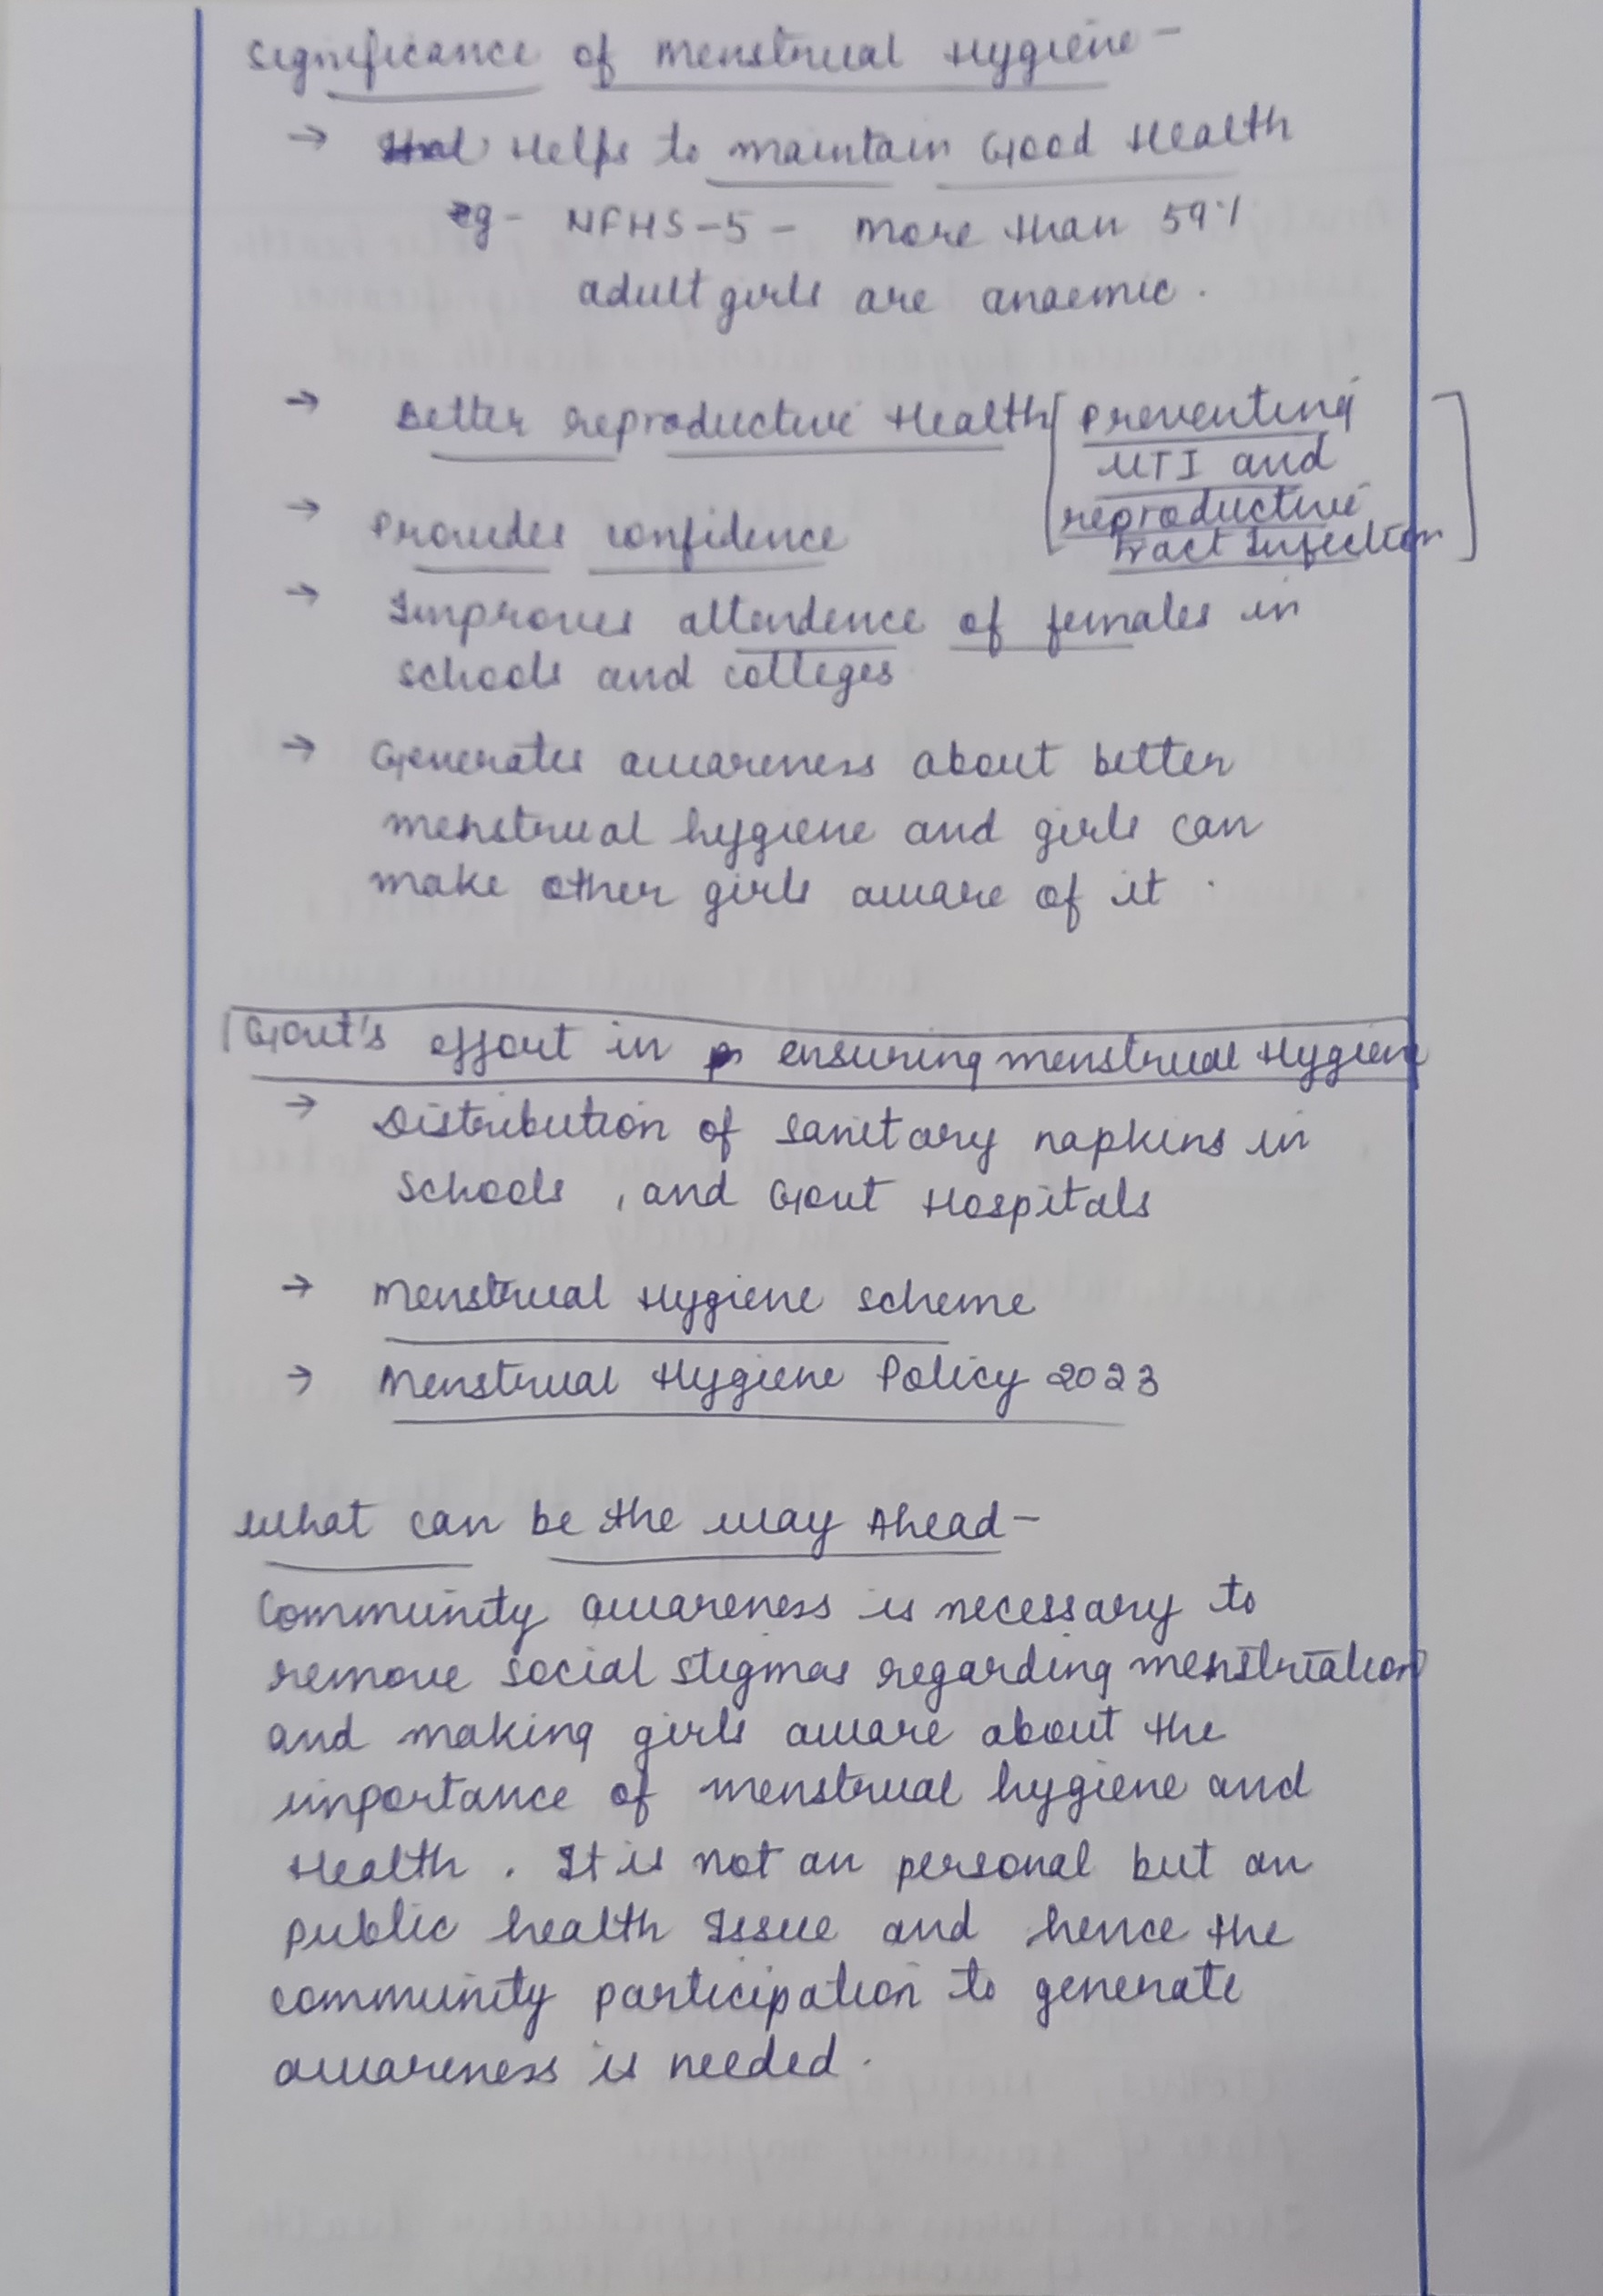 Significance of Menstrual Hygiene -
→ Helps to maintain Good Health
eg - NFHS-5 - More than 59%
adult girls are anaemic.
→ Better reproductive Health [Preventing
UTI and
reproductive
Tract Infection]
→ Provides confidence
→ Improves attendence of females in
schools and colleges
→ Generates awareness about better
menstrual hygiene and girls can
make other girls aware of it.
Govt's effort in ensuring menstrual Hygiene
→ Distribution of sanitary napkins in
schools, and Govt Hospitals
→ Menstrual Hygiene scheme
→ Menstrual Hygiene Policy 2023
What can be the way Ahead -
Community awareness is necessary to
remove social stigmas regarding menstriation
and making girls aware about the
importance of menstrual hygiene and
Health. It is not an personal but an
public health Issue and hence the
community participation to generate
awareness is needed.